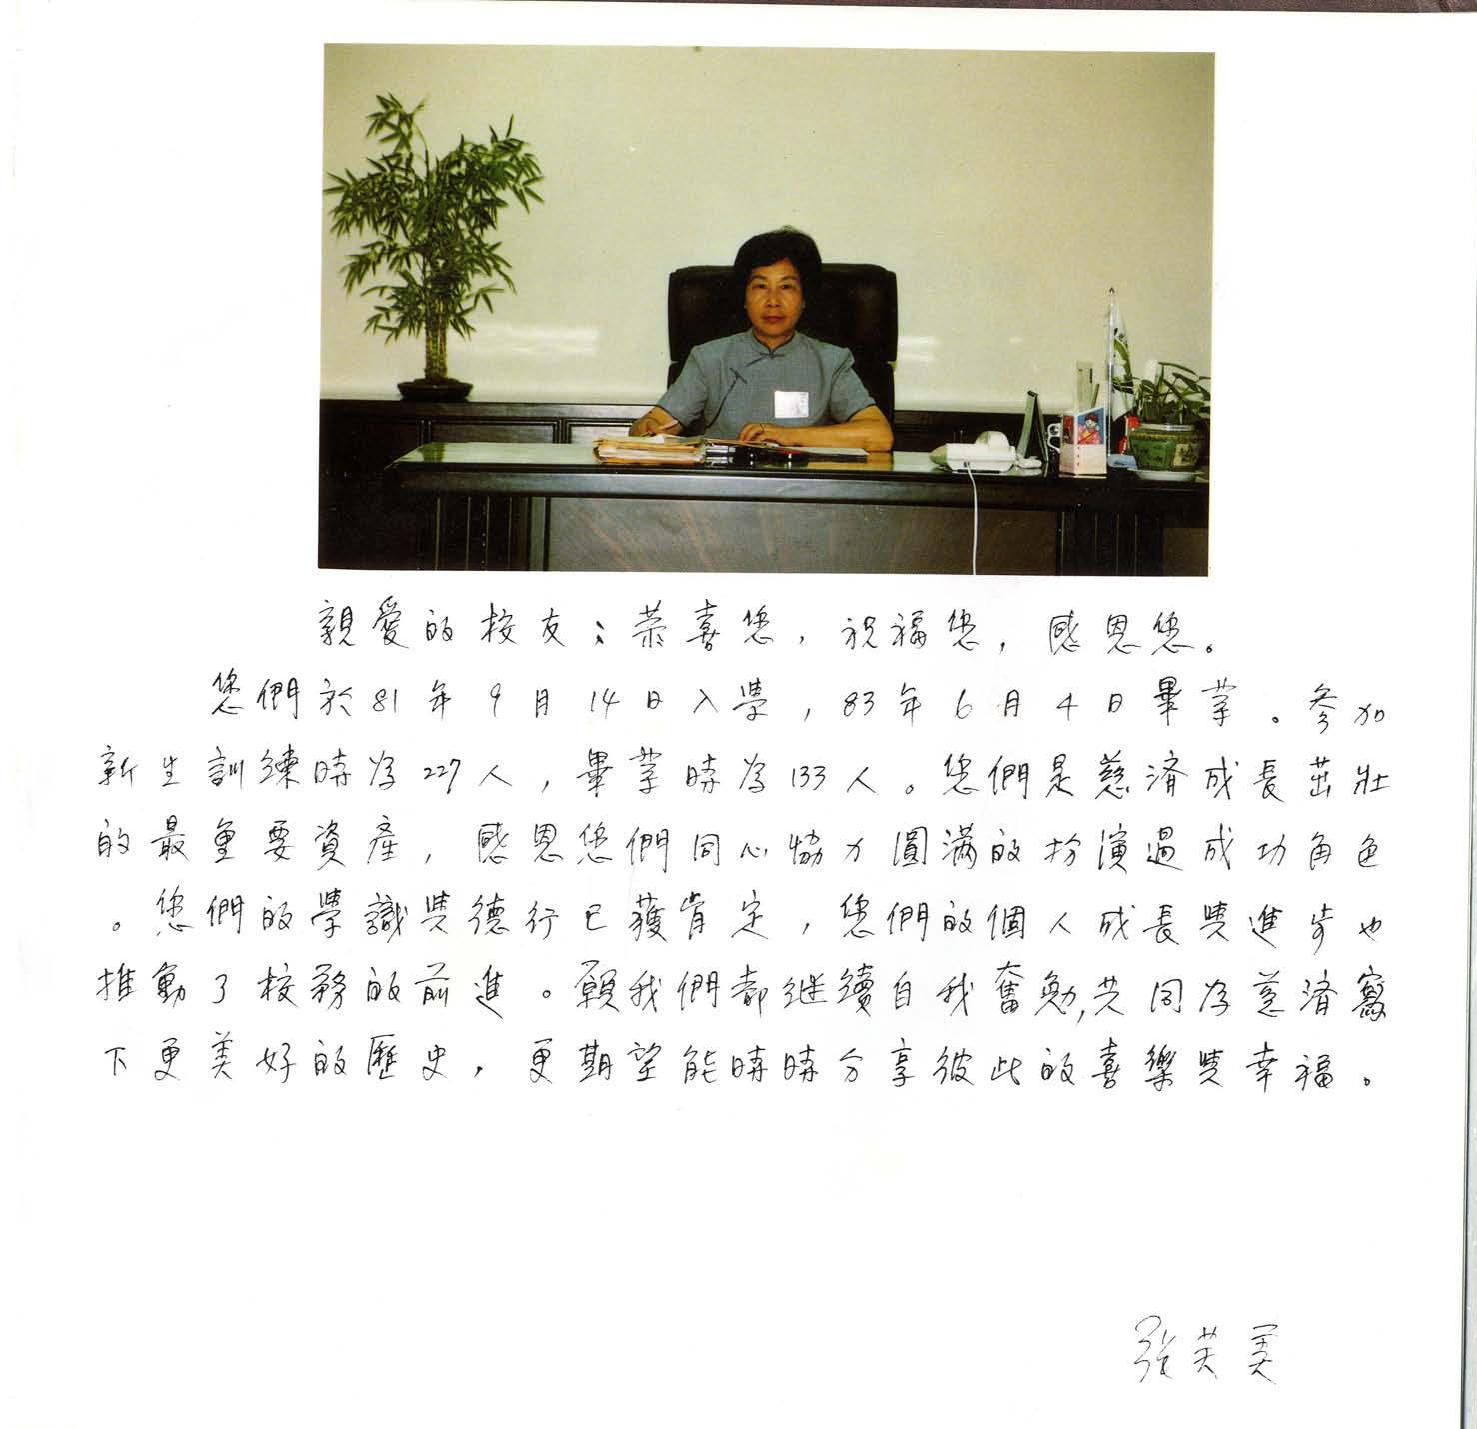 親愛的校友：恭喜您，祝福您，感恩您。
您們於81年9月14日入學，83年6月4日畢業。參加
新生訓練時為227人，畢業時為133人。您們是慈濟成長茁壯
的最重要資產，感恩您們同心協力圓滿的扮演過成功角色
。您們的學識與德行已獲肯定，您們的個人成長與進步也
推動了校務的前進。願我們都継續自我奮勉,共同為慈濟寫
下更美好的歷史，更期望能時時分享彼此的喜樂與幸福。
張芙美